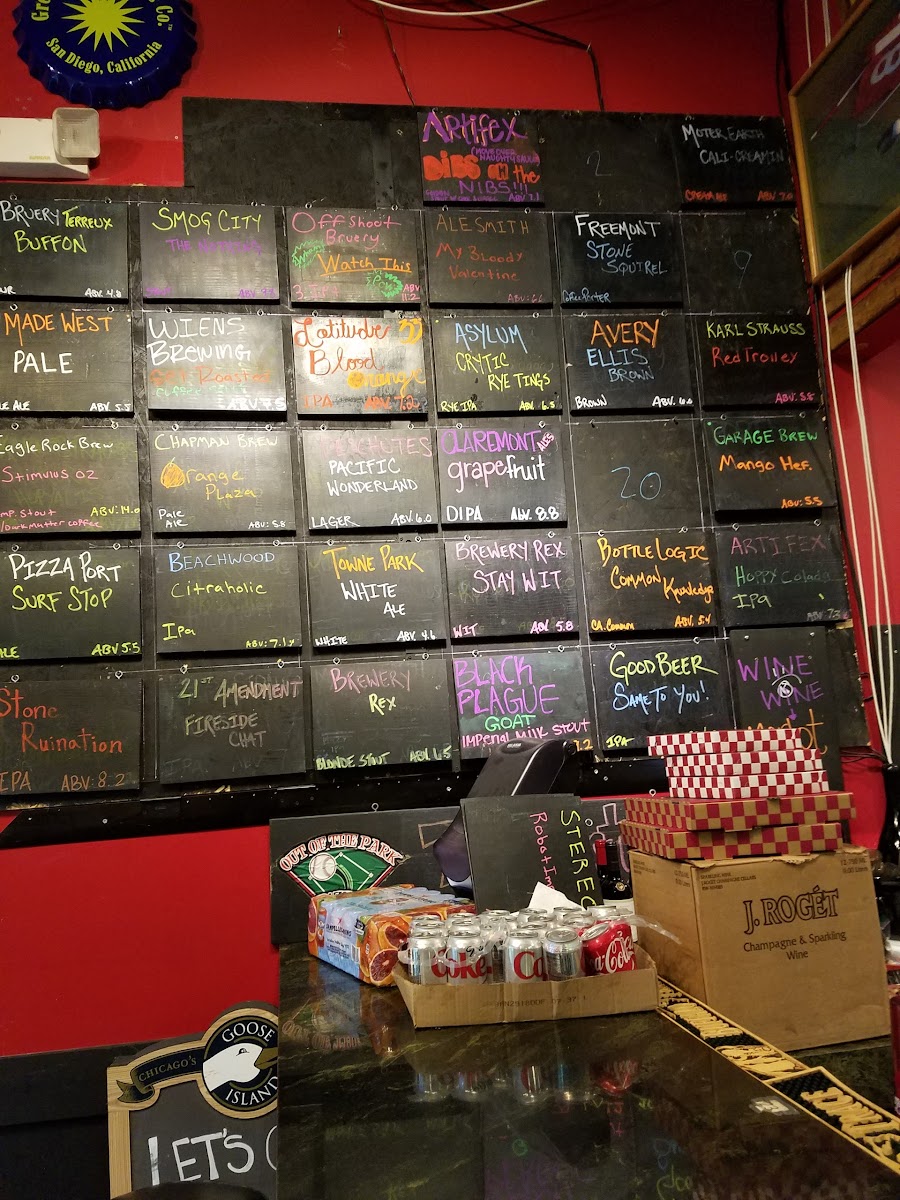 Gre
Co.
San Diego, California
Artifex
(MOVE OVER
NAUGHTY SAUCE)
DIBS ON the
NIBS!!!
ABV 7.1
2
MOTER EARTH
CALI-CREAMIN
CREAM
ABV 7.0
BRUERY TERREUX
BUFFON
UR
ABV 4.8
SMOG CITY
THE
ABV
Offshoot
Bruery
Watch This
ABV
11.2
ALE SMITH
My Bloody
Valentine
ABV:
FREEMONT
STONE
SQUIREL
9
MADE WEST
PALE
LE ALE ABV 5.5
WIENS
BREWING
Roaster
ABV
Latitude 33
Blood
Orange
IPA ABV 7.2
ASYLUM
CRYTIC
RYE TINGS
RYE IPA ABV 6.5
AVERY
ELLIS
BROWN
BROWN ABV. 6.0
KARL STRAUSS
Red Trolley
ABV 5.8
Eagle Rock Brew
Stimulus OZ
mp. Stout ABV: 14.0
/DarkMatter coffee
CHAPMAN BREW
Orange
Plaza
Pale
Ale ABV: 5.8
CHUTES
PACIFIC
WONDERLAND
LAGER ABV. 6.0
CLAREMONT ALES
grapefruit
DIPA Abv. 8.8
20
GARAGE BREW
Mango Hef.
ABV: 5.5
PIZZA PORT
SURF STOP
ALE ABV 5.5
BEACHWOOD
Citraholic
IPa ABV: 7.1
TOWNE PARK
WHITE
ALE
WHITE ABV. 4.6
BREWERY REX
STAY WIT
WIT ABV. 5.8
BOTTLE LOGIC
COMMON
Knowledge
CA. Common ABV. 5.4
ARTIFEX
HOPPY Colada
IPa
ABV:
Stone
Ruination
IPA ABV: 8.2
21ST AMENDMENT
FIRESIDE
CHAT
BREWERY
REX
BLONDE STOUT ABV
BLACK
PLAGUE
GOAT
IMPERIAL MILK STOUT
GOOD BEER
SAME TO YOU!
IPA
WINE
WINE
OUT OF THE PARK
STEREO
Robot
Coke
Coca-Cola
12-750 ML
J. ROGÉT
Champagne & Sparkling
Wine
CHICAGO'S
GOOSE
ISLAND
LET'S